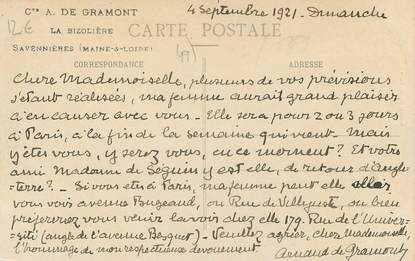 Cte A. DE GRAMONT
LA BIZOLIÈRE
SAVENNIÈRES (MAINE-&-LOIRE)
12€
CARTE POSTALE
4 Septembre 1921 - Dimanche
CORRESPONDANCE
ADRESSE
Chère Mademoiselle, plusieurs de vos prévisions
s'étant réalisées, ma femme aurait grand plaisir
à en causer avec vous. Elle sera pour 2 ou 3 jours
à Paris, à la fin de la semaine qui vient. Mais
y êtes vous, y serez vous, en ce moment? Et votre
ami Madame de Séguin y est elle, de retour d'Angle-
terre? - Si vous êtes à Paris, ma femme peut elle aller
vous voir avenue Bugeaud, ou Rue de Villejust, ou bien
préférerez vous venir la voir chez elle 179. Rue de l'Univer-
sité (angle de l'avenue Bosquet) - Veuillez agréer, chère Mademoiselle,
l'hommage de mon respectueux dévouement.
Arnaud de Gramont